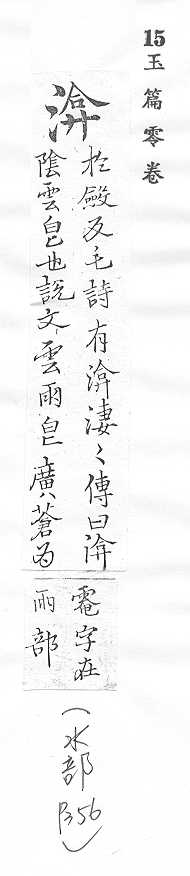 15玉篇零卷
渰
於斂反毛詩有渰淒〻傳曰渰
陰雲皃也說文雲雨皃廣蒼為
䨄字在
雨部
（水部P356）